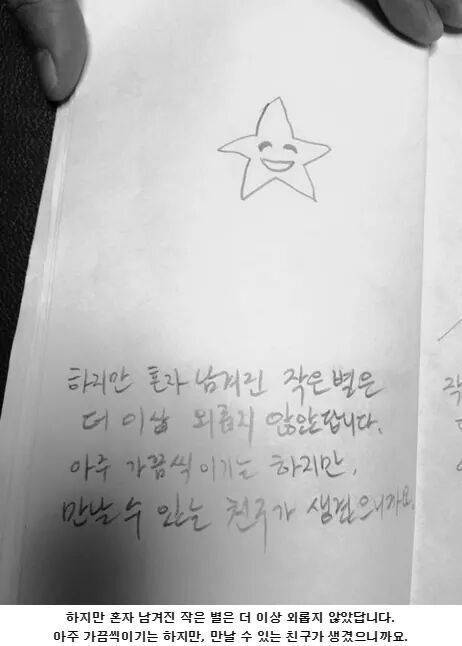 하지만 혼자 남겨진 작은별은
더 이상 외롭지 않았답니다.
아주 가끔씩이기는 하지만,
만날 수 있는 친구가 생겼으니까요.
작
하지만 혼자 남겨진 작은 별은 더 이상 외롭지 않았답니다.
아주 가끔씩이기는 하지만, 만날 수 있는 친구가 생겼으니까요.